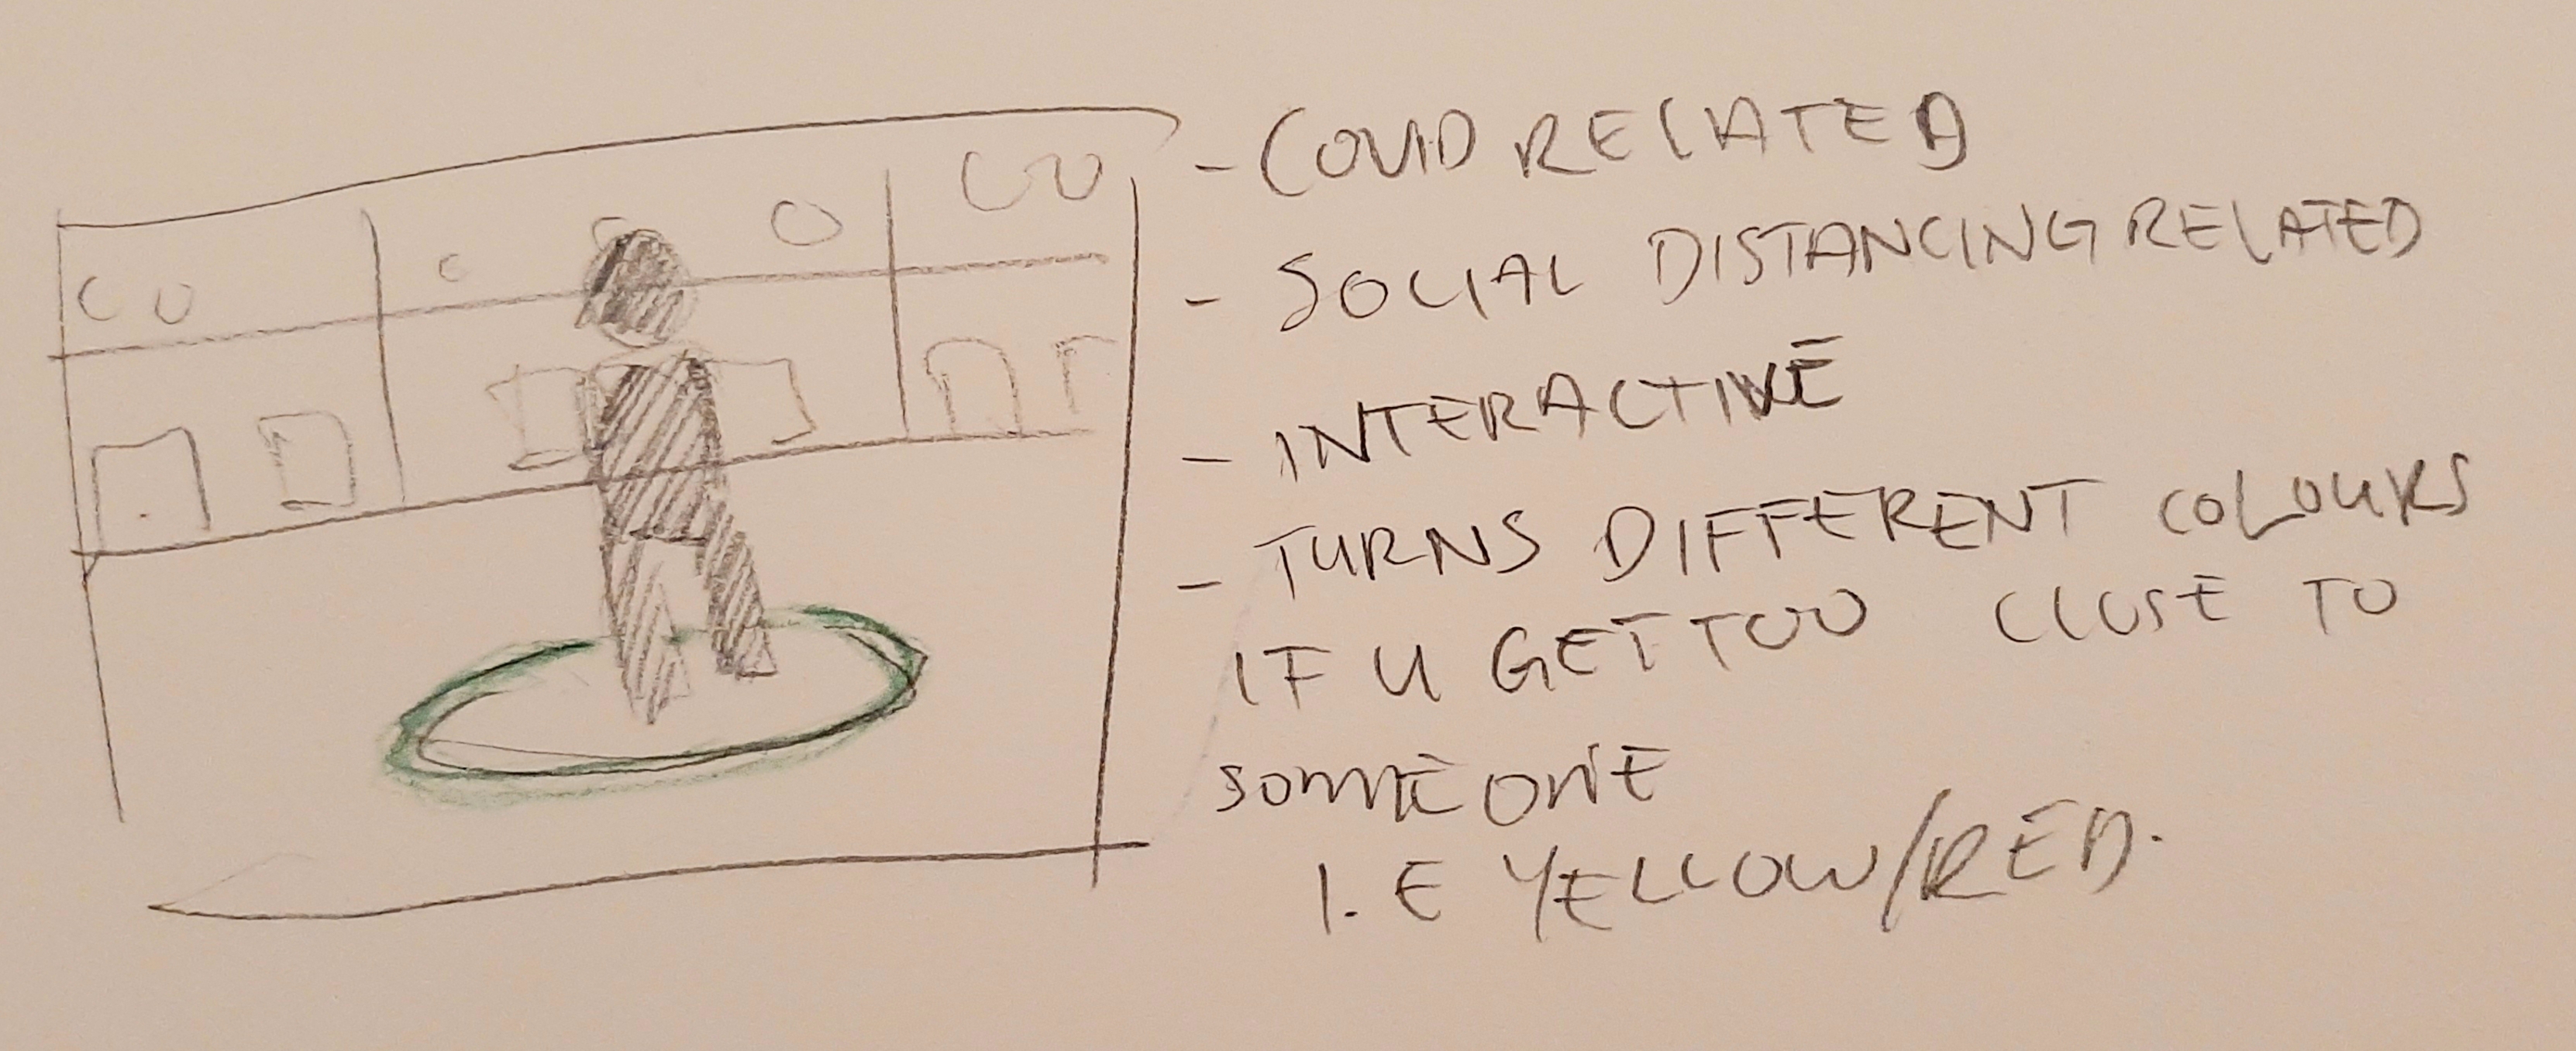 - COVID RELATED
- SOCIAL DISTANCING RELATED
- INTERACTIVE
- TURNS DIFFERENT COLOURS
IF U GET TOO CLOSE TO
SOMEONE
I.E YELLOW/RED.